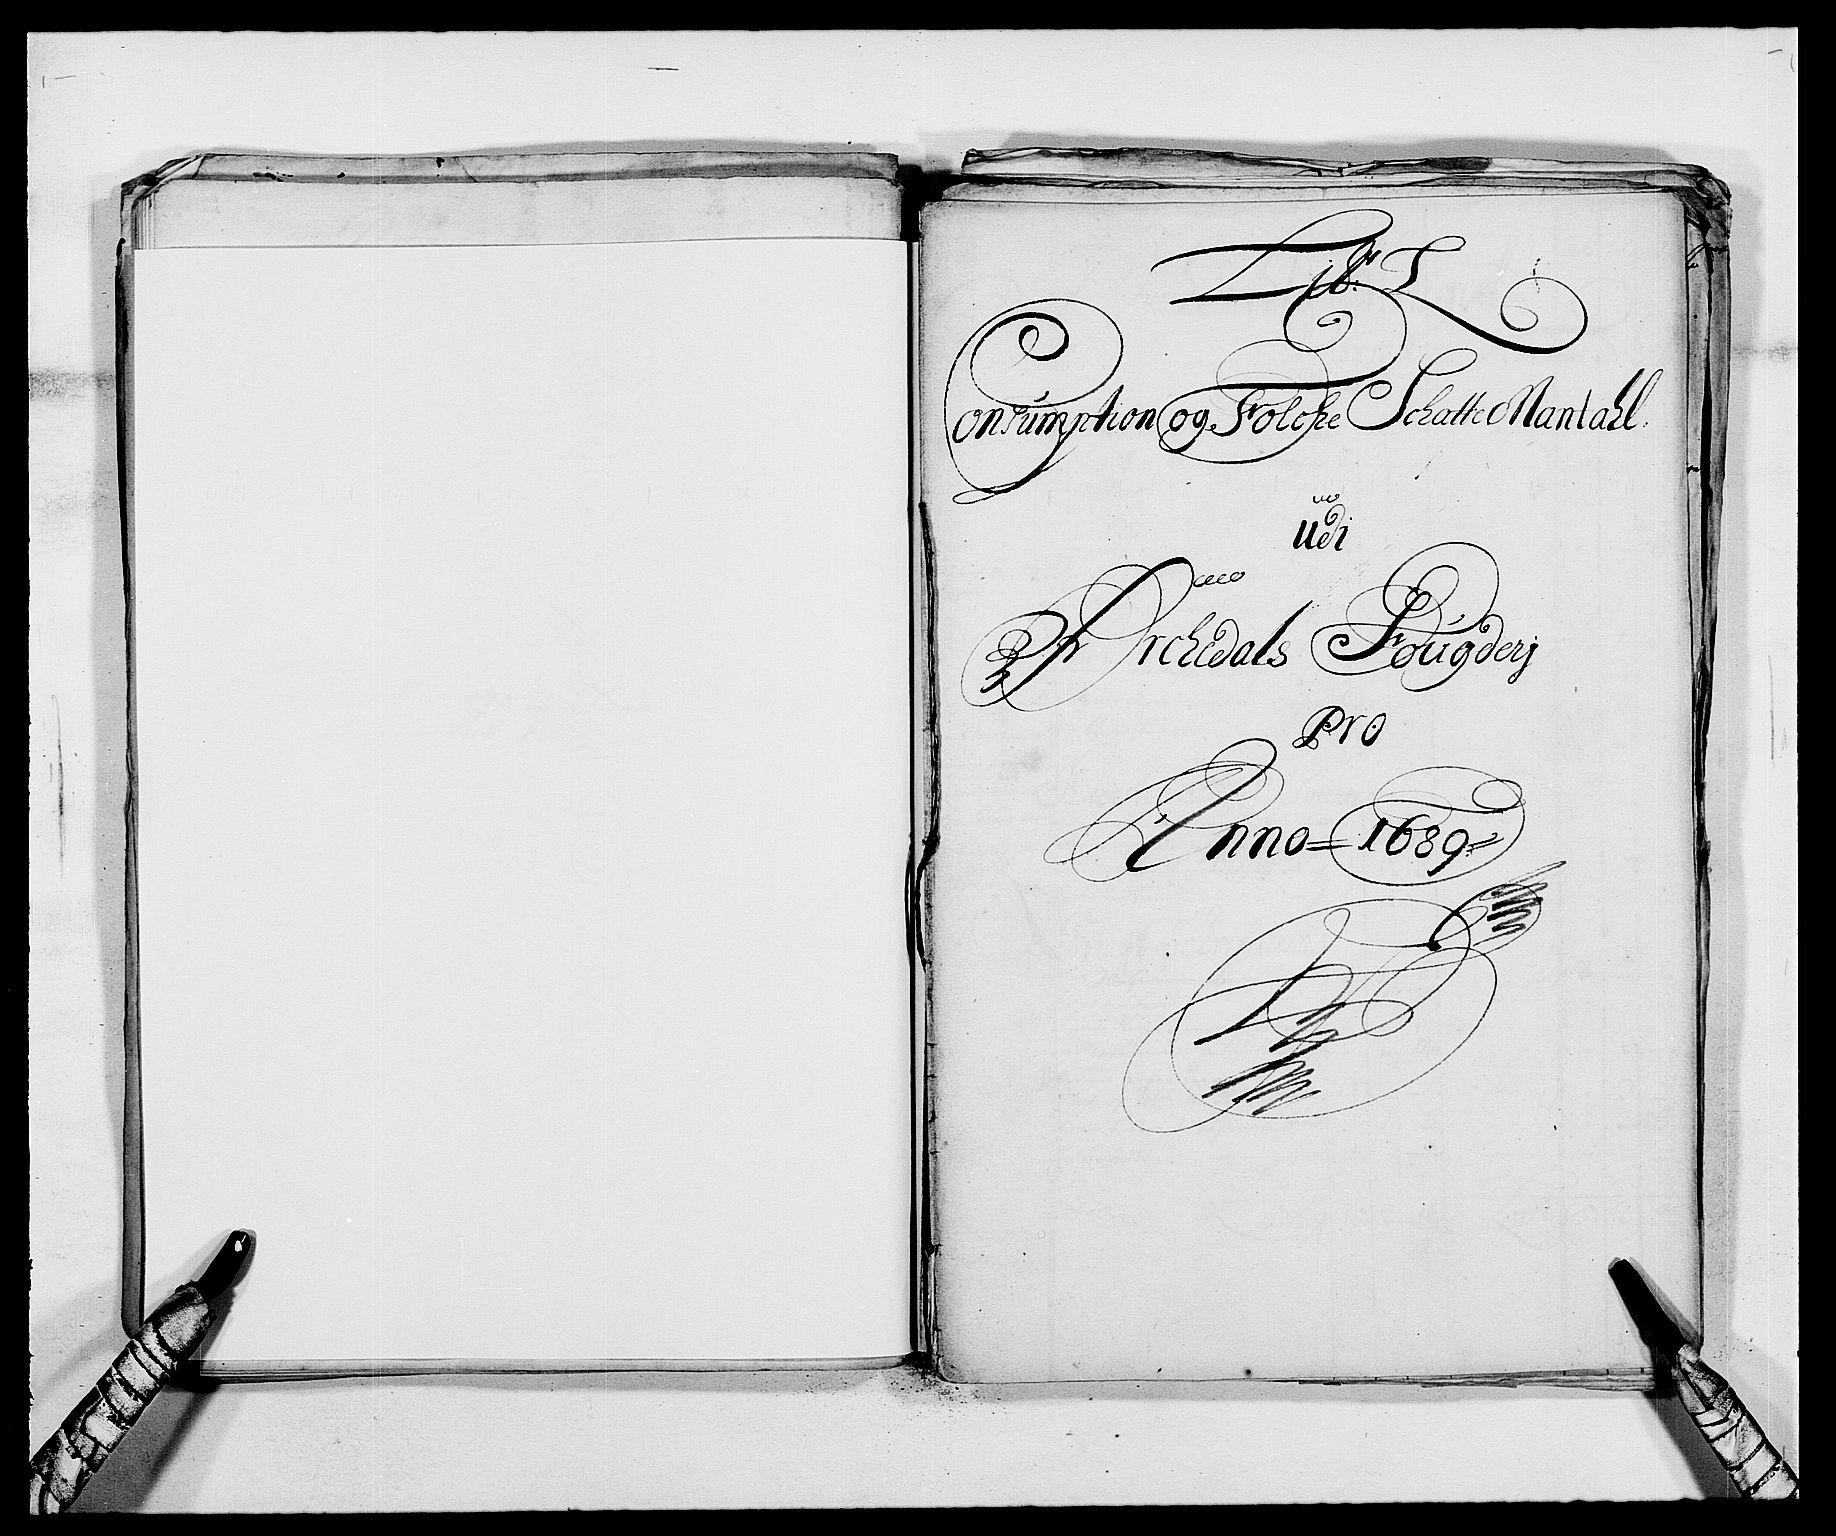 Lit: L
Consumption og Folche Schatte Mantahl.
udi
Orchedals Fougderj
pro
Anno = 1689 =